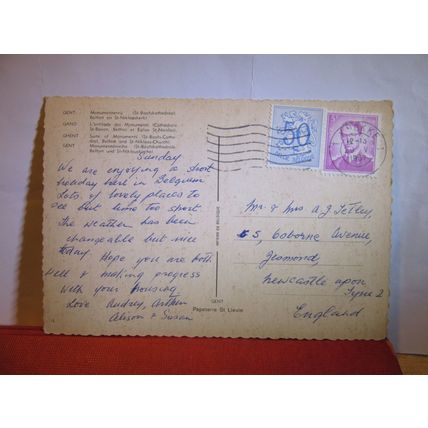 GENT Monumentenrij (St-Baafskathedraal,
Belfort en St-Niklaaskerk)
GAND L'enfilade des Monuments (Cathédrale
St-Bavon, Belfroi et Eglise St-Nicolas)
GHENT Suite of Monuments (St-Bavo's-Cathe-
dral, Belfort and St-Niklaas-Church)
GENT
Sunday
We are enjoying a short
holiday here in Belgium
Lots of lovely places to
see but time too short
the weather has been
changeable but nice
today. Hope you are both
well & making progress
with your housing
Love Audrey, Arthur
Alison & Susan
GENT
Papeterie St. Liévin
50
Mr. & Mrs A J Tetley,
5, Osborne Avenue,
Jesmond,
Newcastle upon
Tyne 2
England